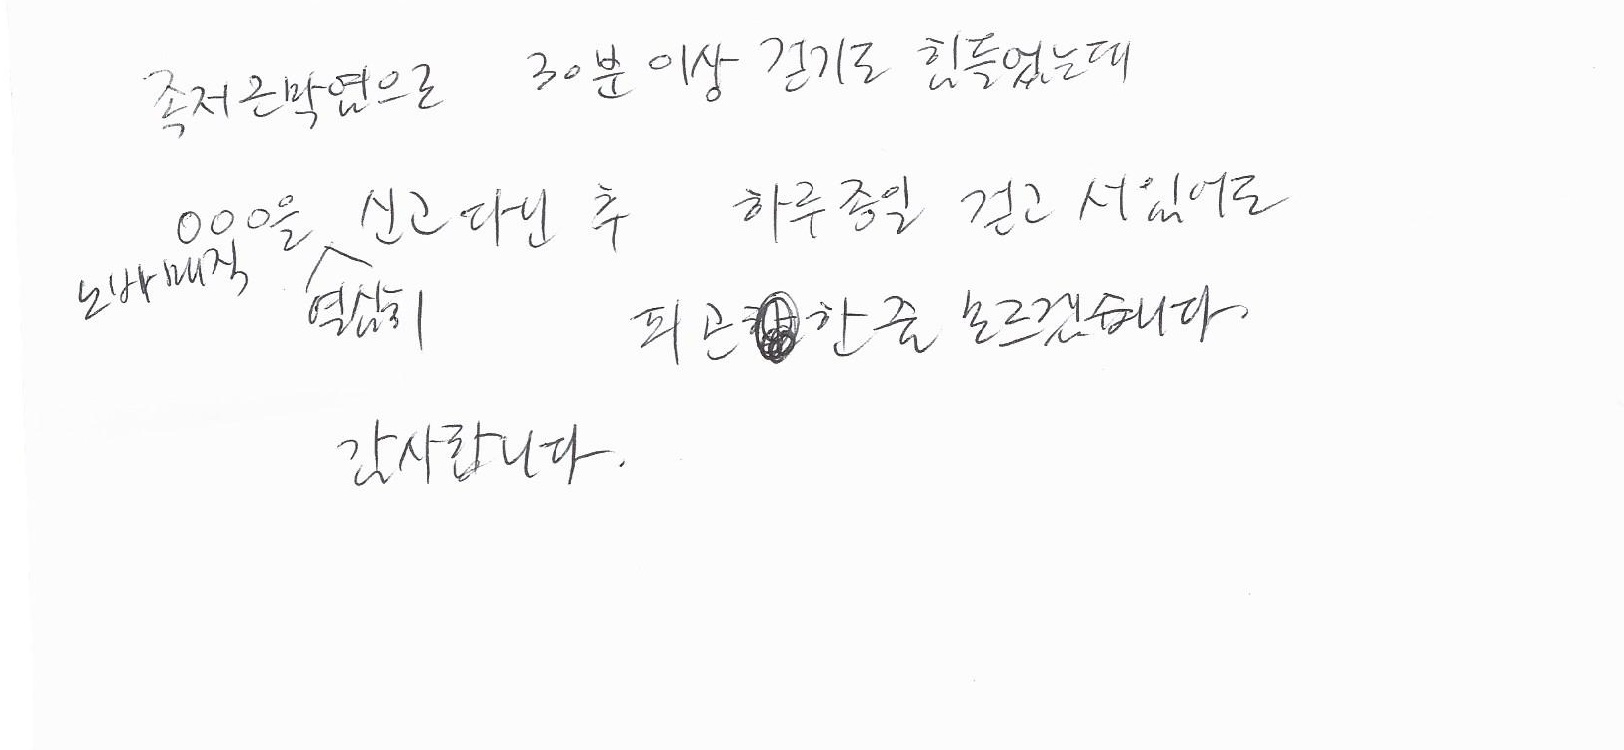 족저근막염으로 30분 이상 걷기도 힘들었는데
000을 신고다닌 후 하루종일 걷고 서있어도
노바매직 열심히
피곤한 줄 모르겠습니다.
감사합니다.